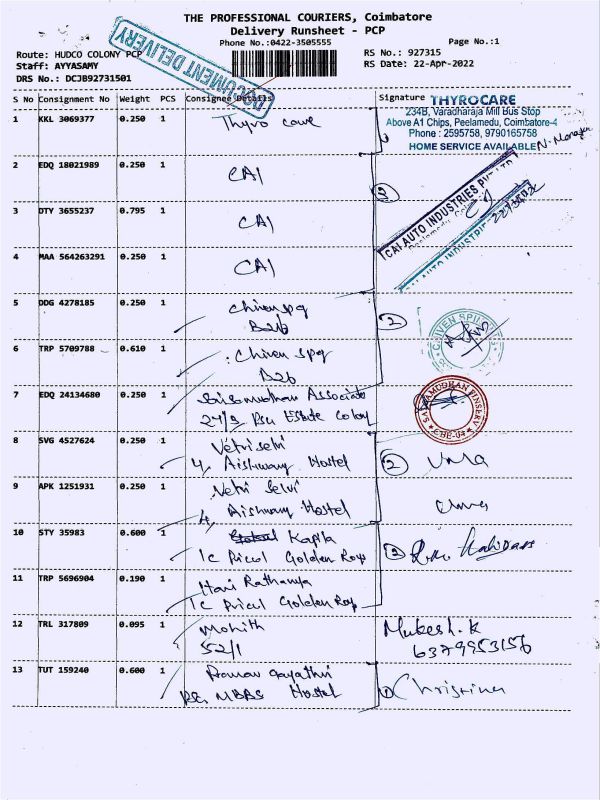 THE PROFESSIONAL COURIERS, Coimbatore
Delivery Runsheet - PCP
Phone No.:0422-3505555
Page No.:1
Route: HUDCO COLONY PCP
Staff: AYYASAMY
DRS No.: DCJB92731501
DOCUMENT DELIVERY
RS No.: 927315
RS Date: 22-Apr-2022
S No Consignment No Weight PCS Consignee Details Signature
THYROCARE
234B, Varadharaja Mill Bus Stop
Above A1 Chips, Peelamedu, Coimbatore-4
Phone : 2595758, 9790165758
HOME SERVICE AVAILABLE
1 KKL 3069377 0.250 1 Thyro care
2 EDQ 18021989 0.250 1 CAI
CAI AUTO INDUSTRIES
3 DTY 3655237 0.795 1 CAI
4 MAA 564263291 0.250 1 CAI
5 DDG 4278185 0.250 1 Chiven spg
B26
6 TRP 5709788 0.610 1 Chiven spg
B26
7 EDQ 24134680 0.250 1 Associate
Estate Colony
8 SVG 4527624 0.250 1 Vetriselvi
4, Aishwarya Hostel
Uma
9 APK 1251931 0.250 1 Vetri Selvi
4, Aishwarya Hostel
Uma
10 STY 35983 0.600 1 Kapila
1c Pricol Golden Rays
11 TRP 5696904 0.190 1 Hari Rathanya
1c Pricol Golden Rays
12 TRL 317809 0.095 1 Mohith
52/1
Mukesh.K
6379953156
13 TUT 159240 0.600 1 gayathri
MBBS Hostel
Christina